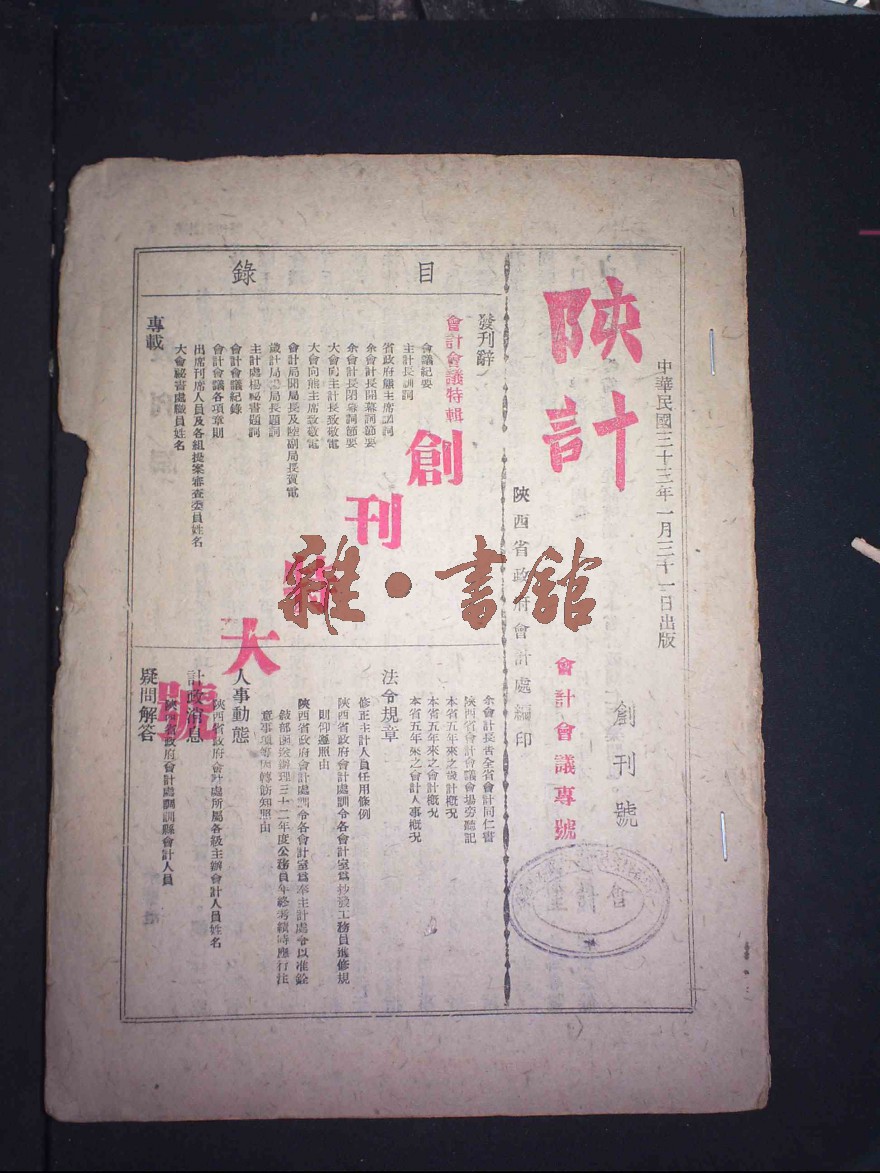 中華民國三十三年一月三十一日出版
創刊號
陝計
會計會議專號
陝西省政府會計處編印
目錄
發刊辭
會計會議特輯
會議紀要
主計長訓詞
省政府熊主席訓詞
余會計長開幕詞節要
余會計長閉幕詞節要
大會向主計長致敬電
大會向熊主席致敬電
會計局聞局長及陸副局長賀電
歲計局局長題詞
主計處楊秘書題詞
會計會議紀錄
會計會議各項章則
出席列席人員及各組提案審查委員姓名
大會秘書處職員姓名
專載
余會計長告全省會計同仁書
陝西省會計會議會場旁聽記
本省五年來之歲計概況
本省五年來之會計概況
本省五年來之會計人事概況
法令規章
修正主計人員任用條例
陝西省政府會計處訓令各會計室爲鈔發工務員進修規
則仰遵照由
陝西省政府會計處訓令各會計室爲奉主計處令以准銓
敍部函送辦理三十二年度公務員年終考績時應行注
意事項等因轉飭知照由
人事動態
陝西省政府會計處所屬各級主辦會計人員姓名
計政消息
陝西省政府會計處調訓縣會計人員
疑問解答
創刊特大號
會計室
雜·書館